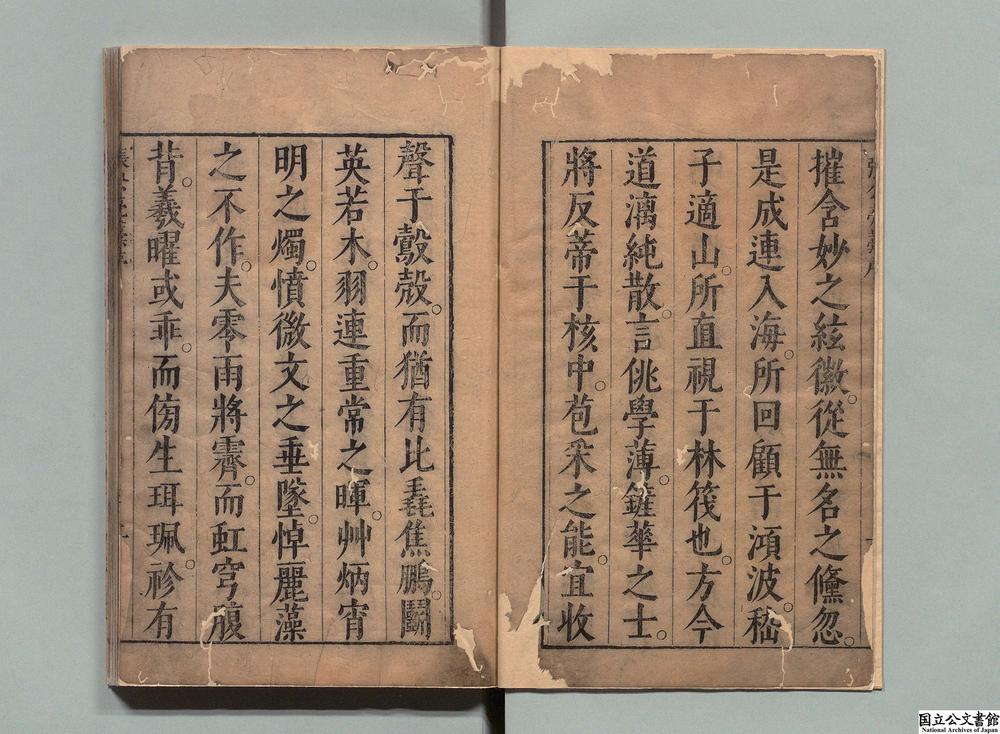 摧含妙之絃徽。從無名之儵忽。
是成連入海。所回顧于澒波。嵇
子適山。所直視于林筏也。方今
道漓純散。言佻學薄。鏙華之士。
將反蒂于核中。苞釆之能。宜收
聲于鷇殻。而猶有比毳焦鵬。鬬
英若木。羽連重常之暉。艸炳宵
明之燭。憤微文之垂墜。悼麗藻
之不作。夫零雨將霽。而虹穹腹
背。羲曜或乖。而傍生珥珮。袗有
国立公文書館
National Archives of Japan